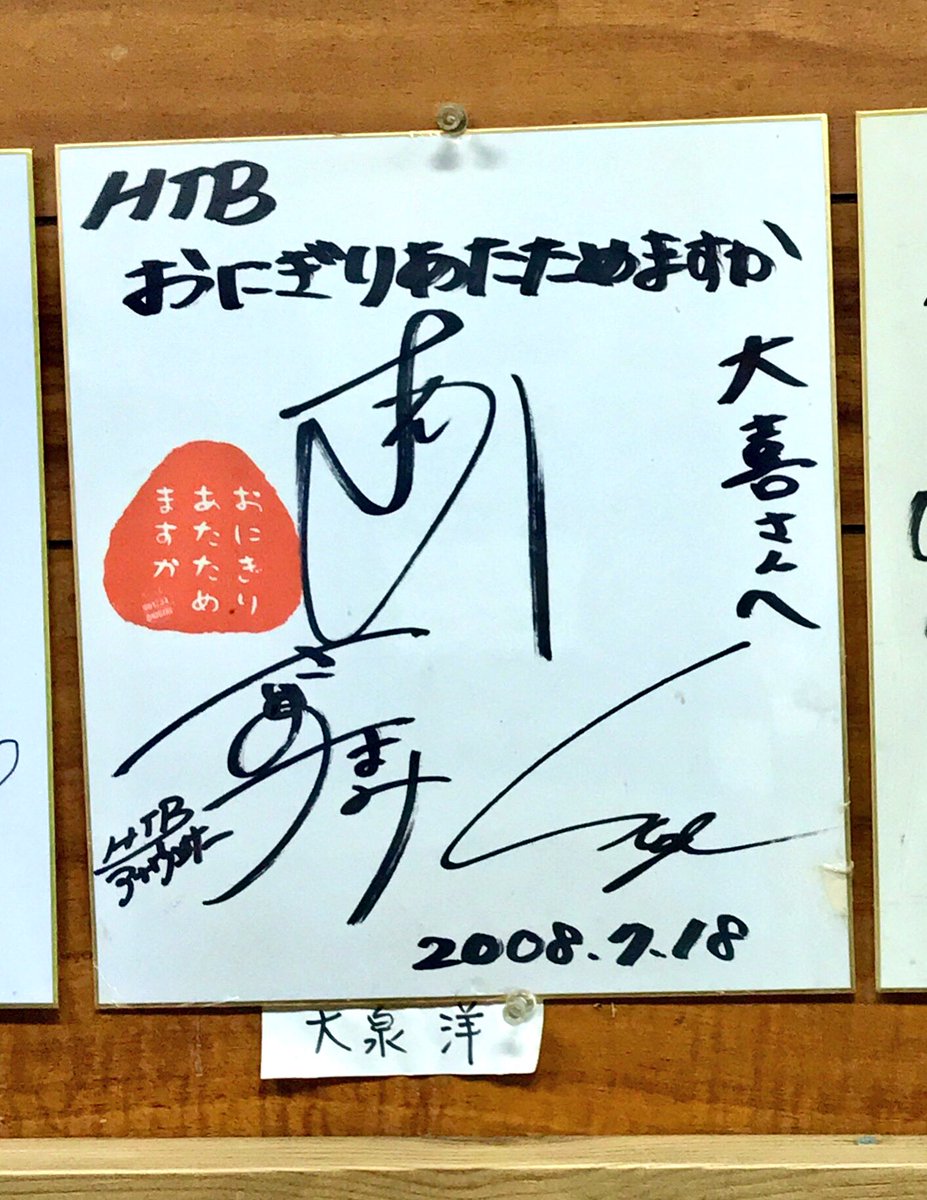 HTB
おにぎりあたためますか
大喜さんへ
おにぎり
あたため
ますか
HTB
アナウンサー
2008.7.18
大泉 洋